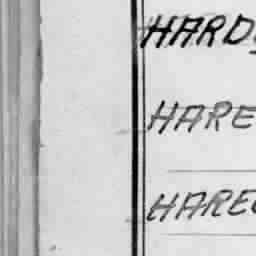 HARD
HARE
HARE